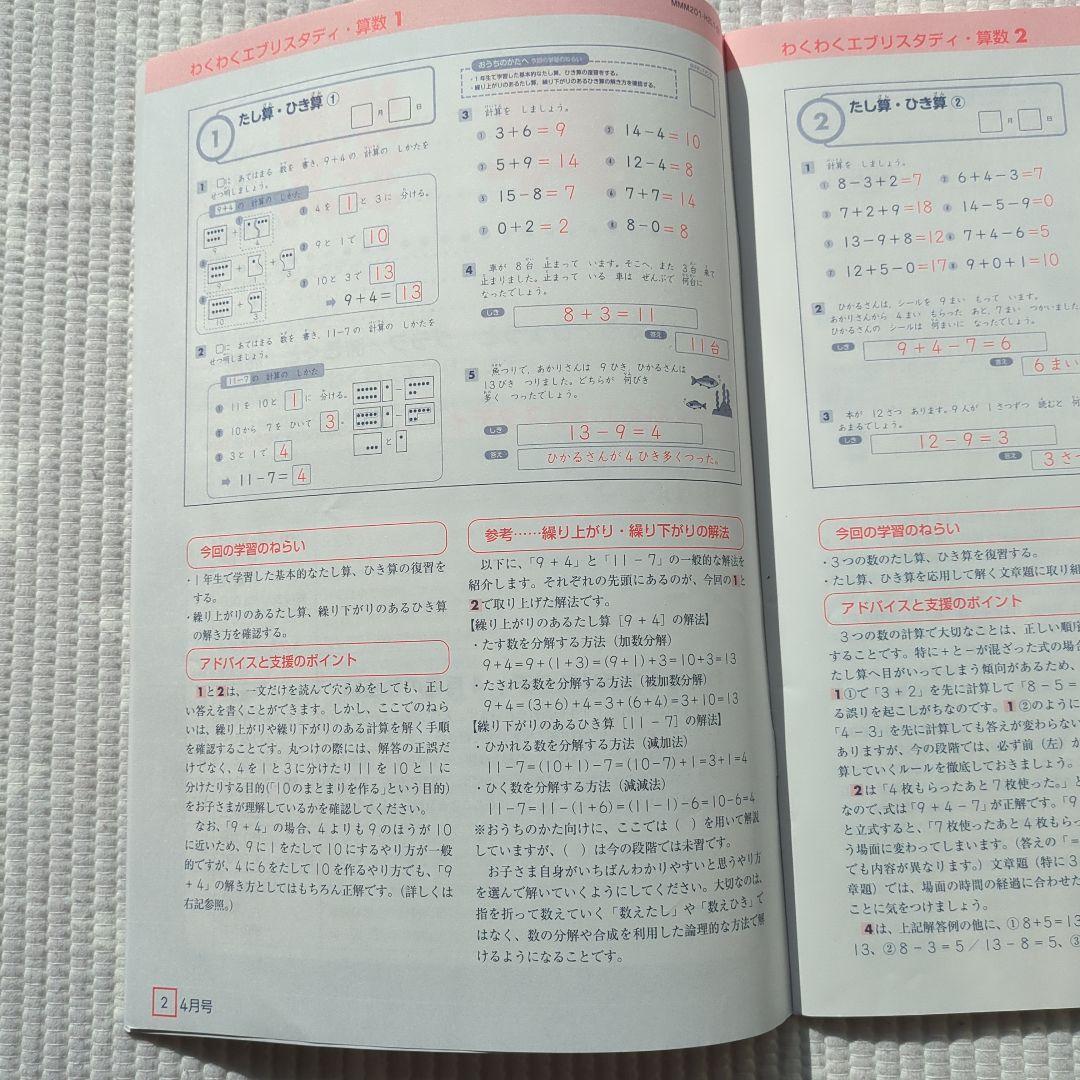 わくわくエブリスタディ・算数 1
1
たし算・ひき算 ①
月 日
1 □に あてはまる 数を 書き、9+4の 計算の しかたを
せつ明しましょう。
9+4の 計算の しかた
① 4を 1 と 3に 分ける。
② 9と 1で 10
③ 10と 3で 13
➡ 9+4= 13
9
4
3
10
3
2 □に あてはまる 数を 書き、11-7の 計算の しかたを
せつ明しましょう。
11-7の 計算の しかた
① 11を 10と 1 に 分ける。
② 10から 7を ひいて 3 。
③ 3と 1で 4
➡ 11-7= 4
と
おうちのかたへ 今回の学習のねらい
・1年生で学習した基本的なたし算、ひき算の復習をする。
・繰り上がりのあるたし算、繰り下がりのあるひき算の解き方を確認する。
3 計算を しましょう。
① 3+6=9
② 14-4=10
③ 5+9=14
④ 12-4=8
⑤ 15-8=7
⑥ 7+7=14
⑦ 0+2=2
⑧ 8-0=8
4 車が 8台 止まって います。そこへ、また 3台 来て
止まりました。止まって いる 車は ぜんぶで 何台に
なったでしょう。
しき 8+3=11
答え 11台
5 魚つりで、あかりさんは 9ひき、ひかるさんは
13びき つりました。どちらが 何びき
多く つったでしょう。
しき 13-9=4
答え ひかるさんが4ひき多くつった。
今回の学習のねらい
・1年生で学習した基本的なたし算、ひき算の復習を
する。
・繰り上がりのあるたし算、繰り下がりのあるひき算
の解き方を確認する。
アドバイスと支援のポイント
1と2は、一文だけを読んで穴うめをしても、正し
い答えを書くことができます。しかし、ここでのねら
いは、繰り上がりや繰り下がりのある計算を解く手順
を確認することです。丸つけの際には、解答の正誤だ
けでなく、4を1と3に分けたり11を10と1に
分けたりする目的(「10のまとまりを作る」という目的)
をお子さまが理解しているかを確認してください。
なお、「9+4」の場合、4よりも9のほうが10
に近いため、9に1をたして10にするやり方が一般
的ですが、4に6をたして10を作るやり方でも、「9
+4」の解き方としてはもちろん正解です。(詳しくは
右記参照。)
参考……繰り上がり・繰り下がりの解法
以下に、「9+4」と「11-7」の一般的な解法を
紹介します。それぞれの先頭にあるのが、今回の1と
2で取り上げた解法です。
【繰り上がりのあるたし算[9+4]の解法】
・たす数を分解する方法(加数分解)
9+4=9+(1+3)=(9+1)+3=10+3=13
・たされる数を分解する方法(被加数分解)
9+4=(3+6)+4=3+(6+4)=3+10=13
【繰り下がりのあるひき算[11-7]の解法】
・ひかれる数を分解する方法(減加法)
11-7=(10+1)-7=(10-7)+1=3+1=4
・ひく数を分解する方法(減減法)
11-7=11-(1+6)=(11-1)-6=10-6=4
※おうちのかた向けに、ここでは( )を用いて解説
していますが、( )は今の段階では未習です。
お子さま自身がいちばんわかりやすいと思うやり方
を選んで解いていくようにしてください。大切なのは、
指を折って数えていく「数えたし」や「数えひき」で
はなく、数の分解や合成を利用した論理的な方法で解
けるようになることです。
2 4月号
わくわくエブリスタディ・算数 2
2
たし算・ひき算 ②
月 日
1 計算を しましょう。
① 8-3+2=7
② 6+4-3=7
③ 7+2+9=18
④ 14-5-9=0
⑤ 13-9+8=12
⑥ 7+4-6=5
⑦ 12+5-0=17
⑧ 9+0+1=10
2 ひかるさんは、シールを 9まい もって います。
あかりさんから 4まい もらった あと、7まい つかいました
ひかるさんの シールは 何まいに なったでしょう。
しき 9+4-7=6
答え 6まい
3 本が 12さつ あります。9人が 1さつずつ 読むと
あまるでしょう。
しき 12-9=3
答え 3さつ
今回の学習のねらい
・3つの数のたし算、ひき算を復習する。
・たし算、ひき算を応用して解く文章題に取り組
アドバイスと支援のポイント
3つの数の計算で大切なことは、正しい順序
することです。特に+と-が混ざった式の場合
たし算へ目がいってしまう傾向があるため、
1①で「3+2」を先に計算して「8-5=
る誤りを起こしがちなのです。1②のように
「4-3」を先に計算しても答えが変わらない
ありますが、今の段階では、必ず前(左)か
算していくルールを徹底しておきましょう。
2は「4枚もらったあと7枚使った。」と
なので、式は「9+4-7」が正解です。「9
と立式すると、「7枚使ったあと4枚もらっ
う場面に変わってしまいます。(答えの「=
でも内容が異なります。)文章題(特に3
章題)では、場面の時間の経過に合わせた
ことに気をつけましょう。
4は、上記解答例の他に、①8+5=13
13、②8-3=5/13-8=5、③